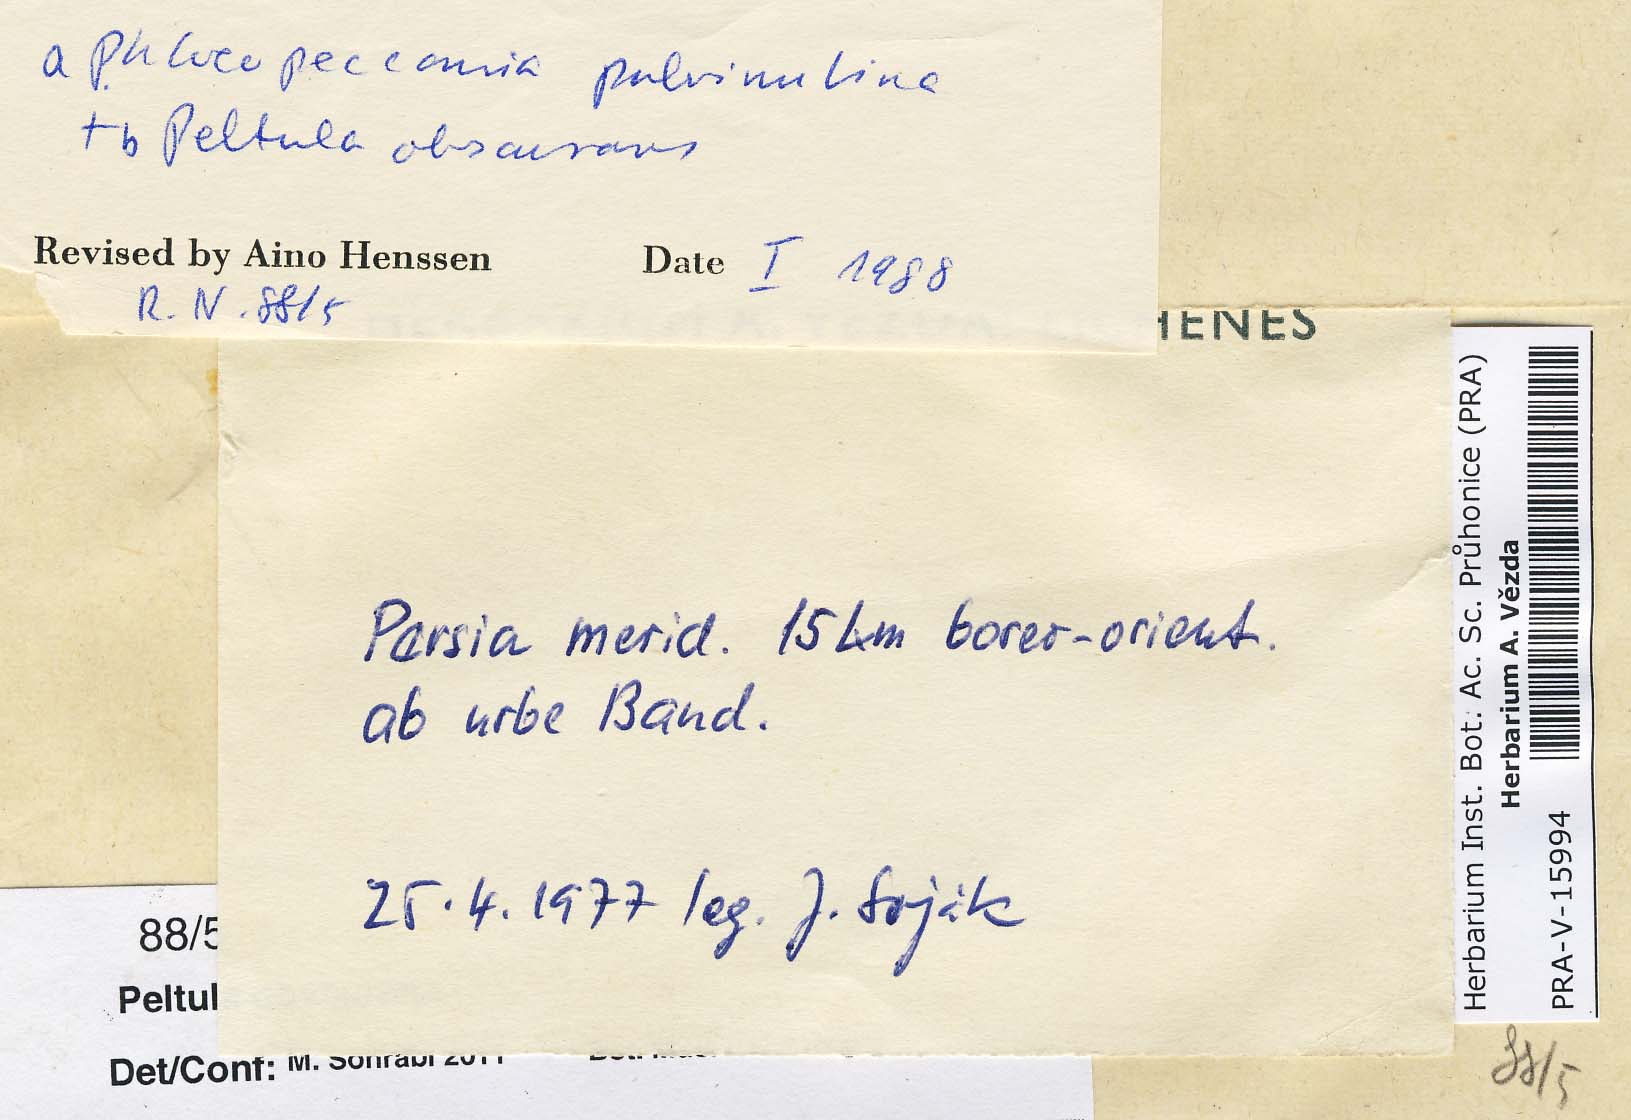 a Phloeopeccania pulvinulina
+ b Peltula obscurans
Revised by Aino Henssen Date I 1988
R. N. 88/5
HENES
Persia merid. 15 km boreo-orient.
ab urbe Band.
25.4.1977 leg. J. Soják
Herbarium Inst. Bot. Ac. Sc. Průhonice (PRA)
Herbarium A. Vězda
PRA-V-15994
88/5
Peltul
Det/Conf: M. Sohrabi 2011
88/5